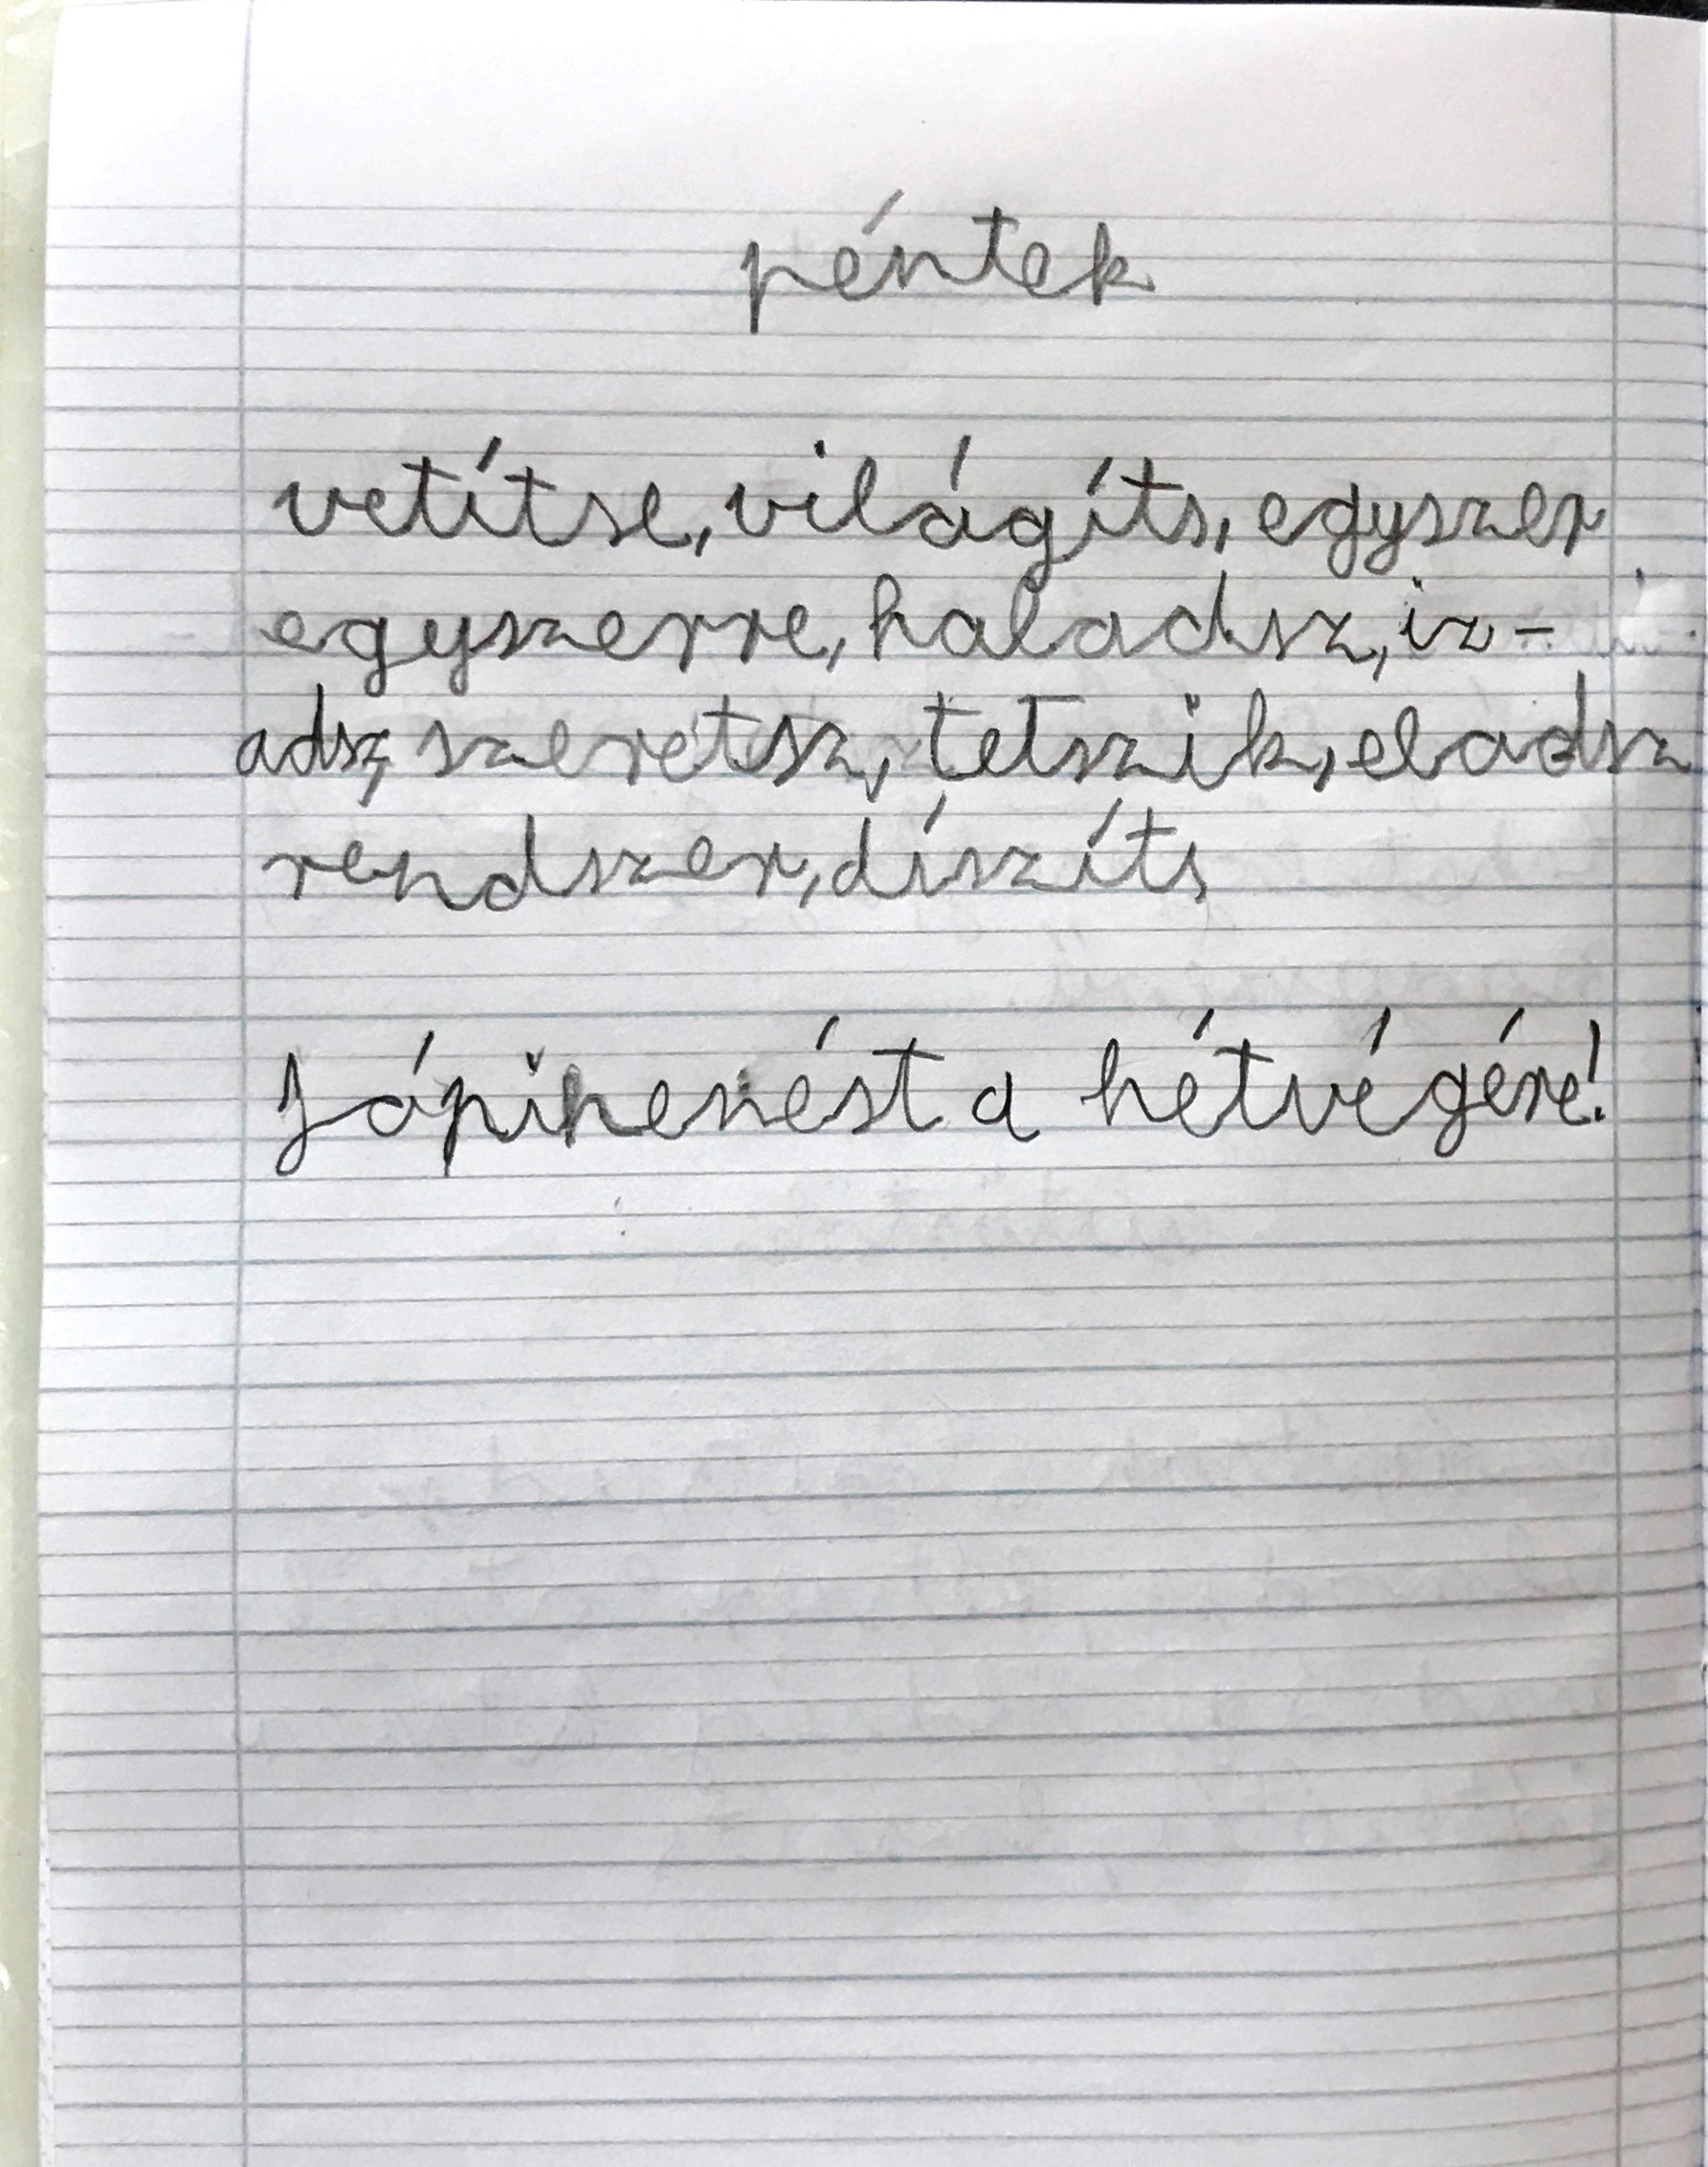 péntek
vetítse, világíts, egyszer
egyszerre, haladsz, iz-
adsz, szeretsz, tetszik, eladsz
rendszer, díszíts
Jó pihenést a hétvégére!